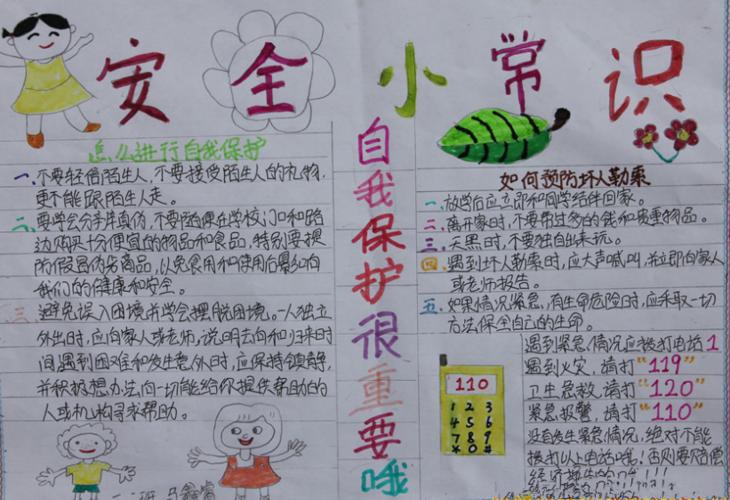 安全小常识
怎么进行自我保护
一、不要轻信陌生人,不要接受陌生人的礼物,
更不能跟陌生人走。
二、要学会分辨真伪,不要随便在学校门口和路
边购买十分便宜的物品和食品,特别要提
防假冒伪劣商品,以免食用和使用后影响
我们的健康和安全。
三、避免误入困境并学会摆脱困境。一人独立
外出时,应向家人或老师,说明去向和归来时
间遇到困难和发生意外时,应保持镇静,
并积极想办法向一切可能给你提供帮助的
人或机构寻求帮助。
自我保护很重要哦
如何预防坏人勒索
一、放学后应立即和同学结伴回家。
二、离开家时,不要带过多的钱和贵重物品。
三、天黑时,不要独自出来玩。
四、遇到坏人勒索时,应大声喊叫,并立即向家人
或老师报告。
五、如果情况紧急,有生命危险时,应采取一切
方法保全自己的生命。
110
1 2 3
4 5 6
7 8 9
* 0 #
遇到紧急情况应拨打电话1
遇到火灾,请打"119"
卫生急救,请打"120"
紧急报警,请打"110"
没有发生紧急情况,绝对不能
拨打以上电话哦,否则要赔偿
经济损失的
班 马鑫睿